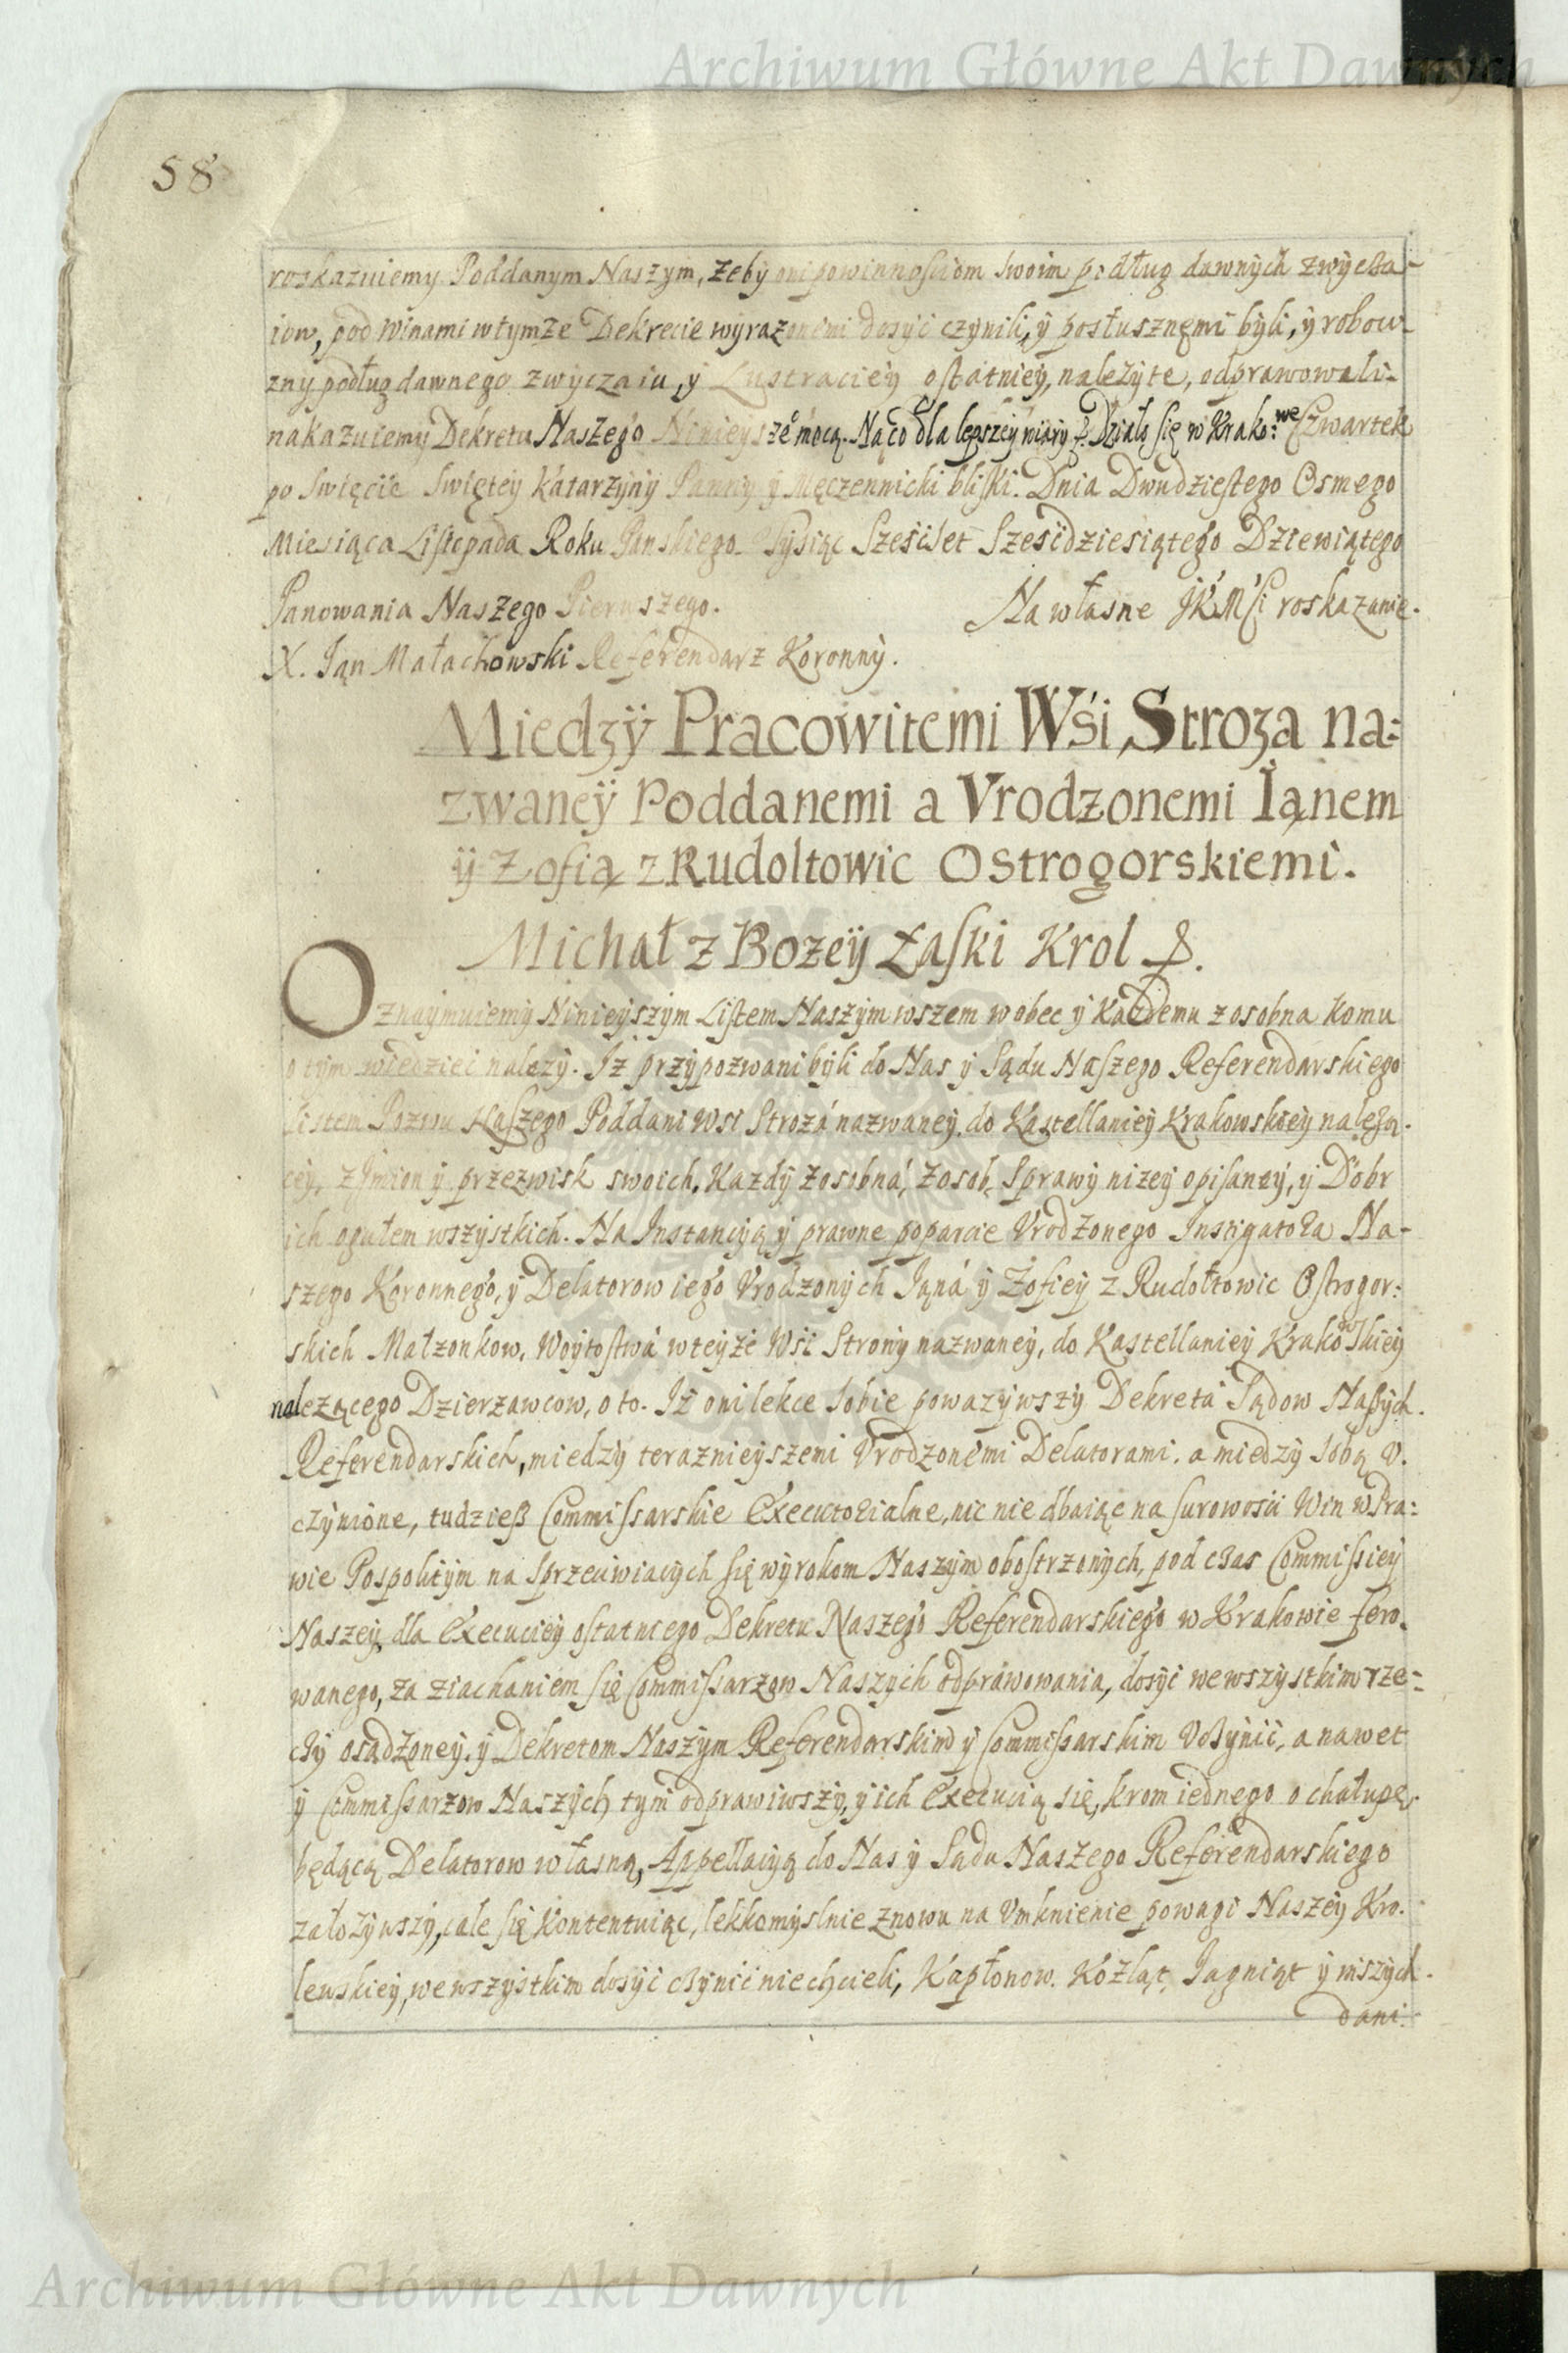 Archiwum Główne Akt Dawnych
58
roskazuiemy Poddanym Naszym, żeby oni powinnosciom swoim podług dawnych zwycza-
iow, pod winami w tymże Dekrecie wyrazonemi dosyć czynili, y posłusznemi byli, y robow-
zny podług dawnego zwyczaiu, y Lustraciey ostatniey, należyte, odprawowali.
nakazuiemy Dekretu Naszego Ninieysze° mocą. Na co dla lepszey wiary &. Działo się w Krako: we Czwartek
po Swięcie Swiętey Katarzyny Panny y Męczennicki bliski. Dnia Dwudziestego Osmego
Miesiąca Listopada Roku Panskiego Tysiąc Szesćset Szescdziesiątego Dziewiątego
Panowania Naszego Pierwszego. Na własne JKMsci roskazanie.
X. Ian Małachowski Referendarz Koronny.
Miedzy Pracowitemi Wsi Stroza na:
zwaney Poddanemi a Vrodzonemi Ianem
y Zofią z Rudoltowic Ostrogorskiemi.
Michał z Bozey Łaski Krol &.
Oznaymuiemy Ninieyszym Listem Naszym wszem wobec y Kazdemu z osobna komu
o tym wiedzieć nalezy. Iż przypozwani byli do Nas y Sądu Naszego Referendarskiego
Listem Pozwu Naszego Poddani Wsi Stroża nazwaney, do Kastellaniey Krakowskiey należą-
cey, z Imion y przezwisk swoich, Kazdy zosobna, z osob, Sprawy nizey opisaney, y Dobr
ich ogułem wszystkich. Na Instancyą y prawne poparcie Vrodzonego Instigatora Na-
szego Koronnego, y Delatorow iego Vrodzonych Iana y Zofiey z Rudołtowic Ostrogor:
skich Małzonkow, Woytostwa w teyże Wsi Strony nazwaney, do Kastellaniey Krakowskiey
należącego Dzierzawcow, o to. Iż oni lekce sobie powazywszy Dekreta Sądow Naszych
Referendarskich, miedzy teraznieyszemi Vrodzonemi Delatorami, a miedzy sobą v-
czynione, tudziesz Commissarskie Executorialne, nic nie dbaiąc na surowości Win w Pra:
wie Pospolitym na sprzeciwiaiących się wyrokom Naszym obostrzonych, pod czas Commissiey
Naszey, dla Executiey ostatniego Dekretu Naszego Referendarskiego w Krakowie fero-
wanego, za ziachaniem się Commissarzow Naszych odprawowania, dosyć we wszystkim rze-
czy osądzoney, y Dekretom Naszym Referendarskim y Commissarskim Vczynić, a nawet
y Commissarzow Naszych tym odprawiwszy, y ich Executią się, krom iednego o chałupę
będącą Delatorow własną, Appellacyą do Nas y Sądu Naszego Referendarskiego
założywszy, cale się kontentuiąc, lekkomyslnie znowu na Vmknienie powagi Naszey Kro-
lewskiey, we wszystkim dosyć czynić niechcieli, Kapłonow, Koźląt, Iagniąt y inszych
dani.
Archiwum Główne Akt Dawnych